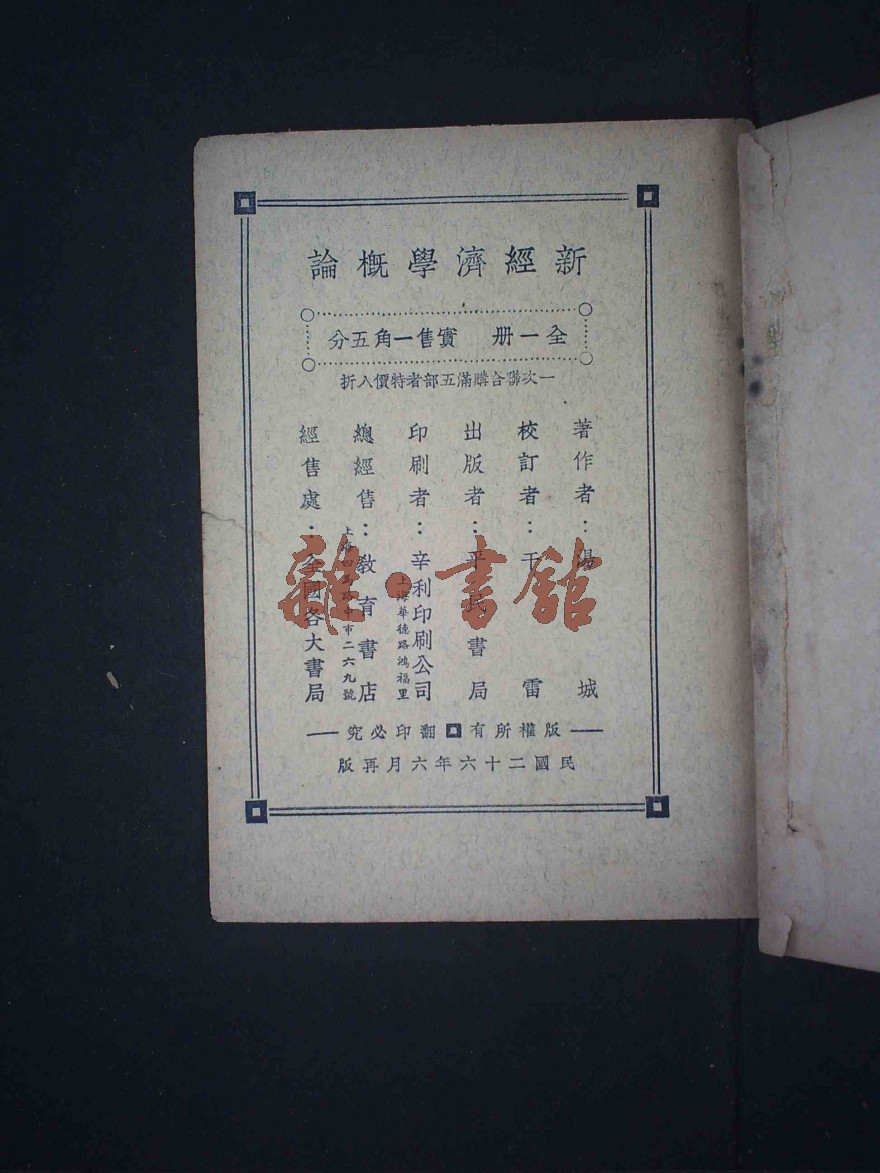 新經濟學槪論
全一册　實售一角五分
一次聯合購滿五部者特價八折
著作者：湯城
校訂者：干雷
出版者：平民書局
印刷者：辛利印刷公司
上海華德路鴻福里
總經售：敎育書店
上海四馬路中市二六九號
經售處：全國各大書局
版權所有 翻印必究
民國二十六年六月再版
雜·書館